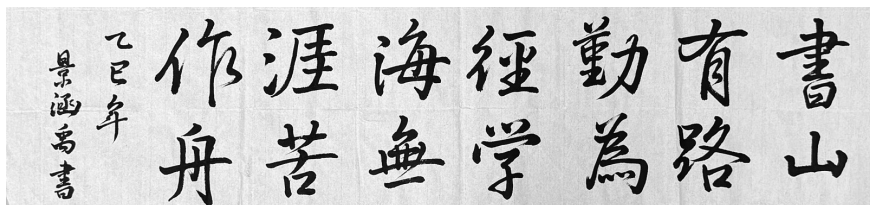 書山
有路
勤為
徑学
海無
涯苦
作舟
乙巳年
景涵禹書